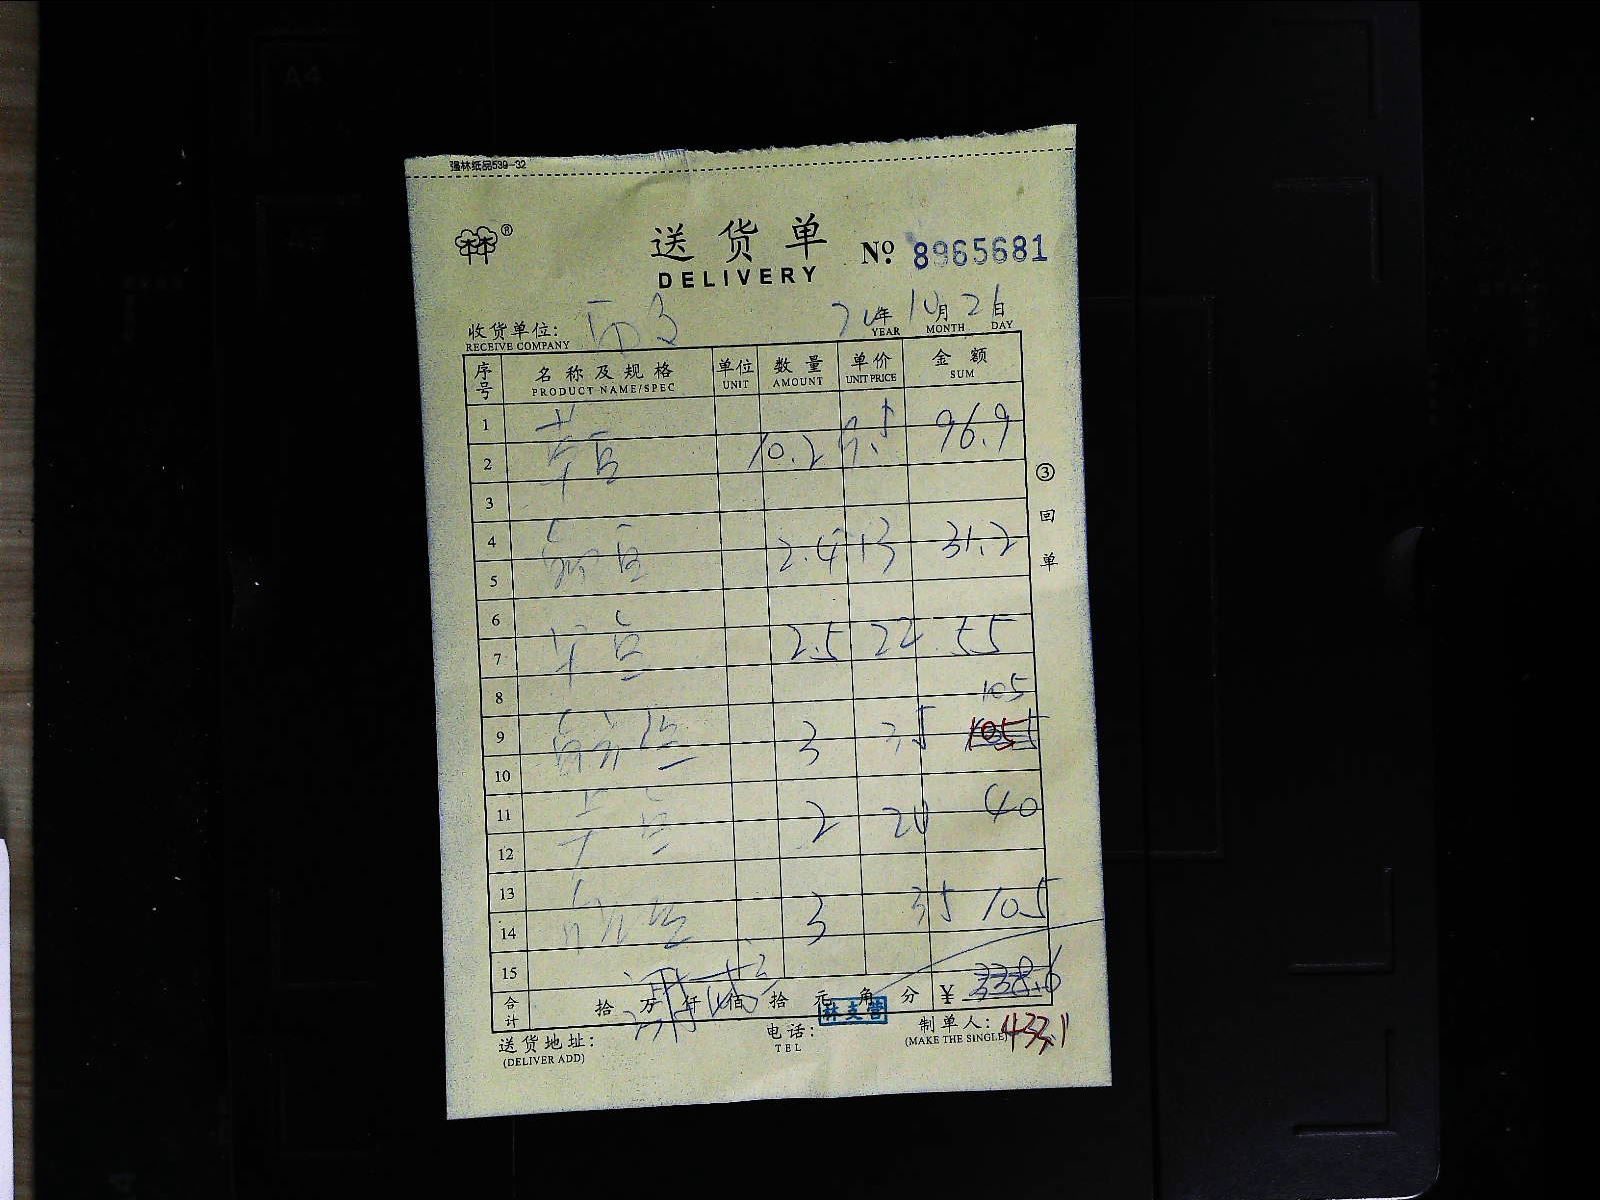 强林纸品539-32
送货单 No 8965681
DELIVERY
收货单位: 年 10月 26日
RECEIVE COMPANY YEAR MONTH DAY
序号 名称及规格 单位 数量 单价 金额
PRODUCT NAME/SPEC UNIT AMOUNT UNIT PRICE SUM
1
2 10.2 9.5 96.9
3
③回单
4
5 2.4 13 31.2
6
7 2.5 22 55
8 105
9 3 35 105
10
11 2 20 40
12
13
14 3 35 105
15
合计 拾 万 仟 佰 拾 元 角 分 ¥ 338.6
林支营
送货地址: 电话: 制单人: 433.1
(DELIVER ADD) TEL (MAKE THE SINGLE)